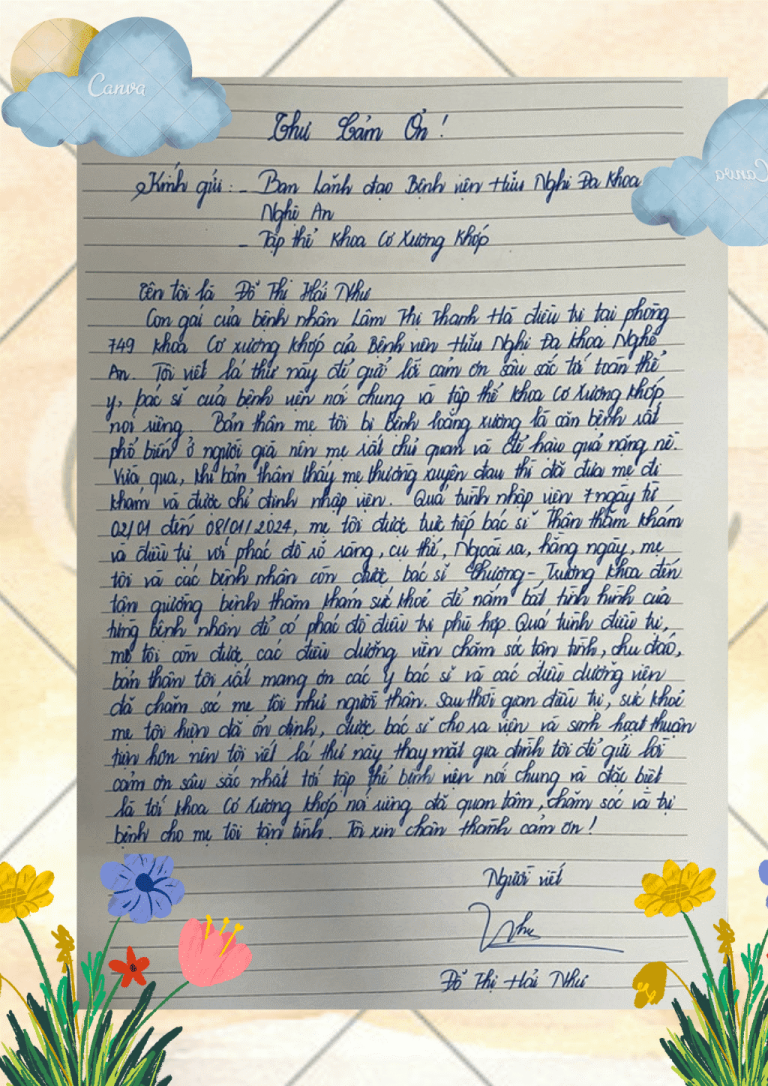 Canva
Thư Cảm Ơn!
Kính gửi: - Ban Lãnh đạo Bệnh viện Hữu Nghị Đa Khoa
Nghệ An
- Tập thể Khoa Cơ Xương Khớp
Tên tôi là Đỗ Thị Hải Như
Con gái của bệnh nhân Lâm Thị Thanh Hà điều trị tại phòng
749 khoa Cơ xương khớp của Bệnh viện Hữu Nghị Đa khoa Nghệ
An. Tôi viết lá thư này để gửi lời cảm ơn sâu sắc tới toàn thể
y, bác sĩ của bệnh viện nói chung và tập thể khoa Cơ Xương Khớp
nói riêng. Bản thân mẹ tôi bị bệnh loãng xương là căn bệnh rất
phổ biến ở người già nên mẹ rất chủ quan và để hậu quả nặng nề.
Vừa qua, khi bản thân thấy mẹ thường xuyên đau thì đã đưa mẹ đi
khám và được chỉ định nhập viện. Quá trình nhập viện 7 ngày từ
02/01 đến 08/01/2024, mẹ tôi được trực tiếp bác sĩ Thân thăm khám
và điều trị với phác đồ rõ ràng, cụ thể, Ngoài ra, hằng ngày, mẹ
tôi và các bệnh nhân còn được bác sĩ Thương - Trưởng khoa đến
tận giường bệnh thăm khám sức khoẻ để nắm bắt tình hình của
từng bệnh nhân để có phác đồ điều trị phù hợp. Quá trình điều trị,
mẹ tôi còn được các điều dưỡng viên chăm sóc tận tình, chu đáo,
bản thân tôi rất mang ơn các y bác sĩ và các điều dưỡng viên
đã chăm sóc mẹ tôi như người thân. Sau thời gian điều trị, sức khoẻ
mẹ tôi hiện đã ổn định, được bác sĩ cho ra viện và sinh hoạt thuận
tiện hơn nên tôi viết lá thư này thay mặt gia đình tôi để gửi lời
cảm ơn sâu sắc nhất tới tập thể bệnh viện nói chung và đặc biệt
là tới khoa Cơ Xương Khớp nói riêng đã quan tâm, chăm sóc và trị
bệnh cho mẹ tôi tận tình. Tôi xin chân thành cảm ơn!
Người viết
Như
Đỗ Thị Hải Như